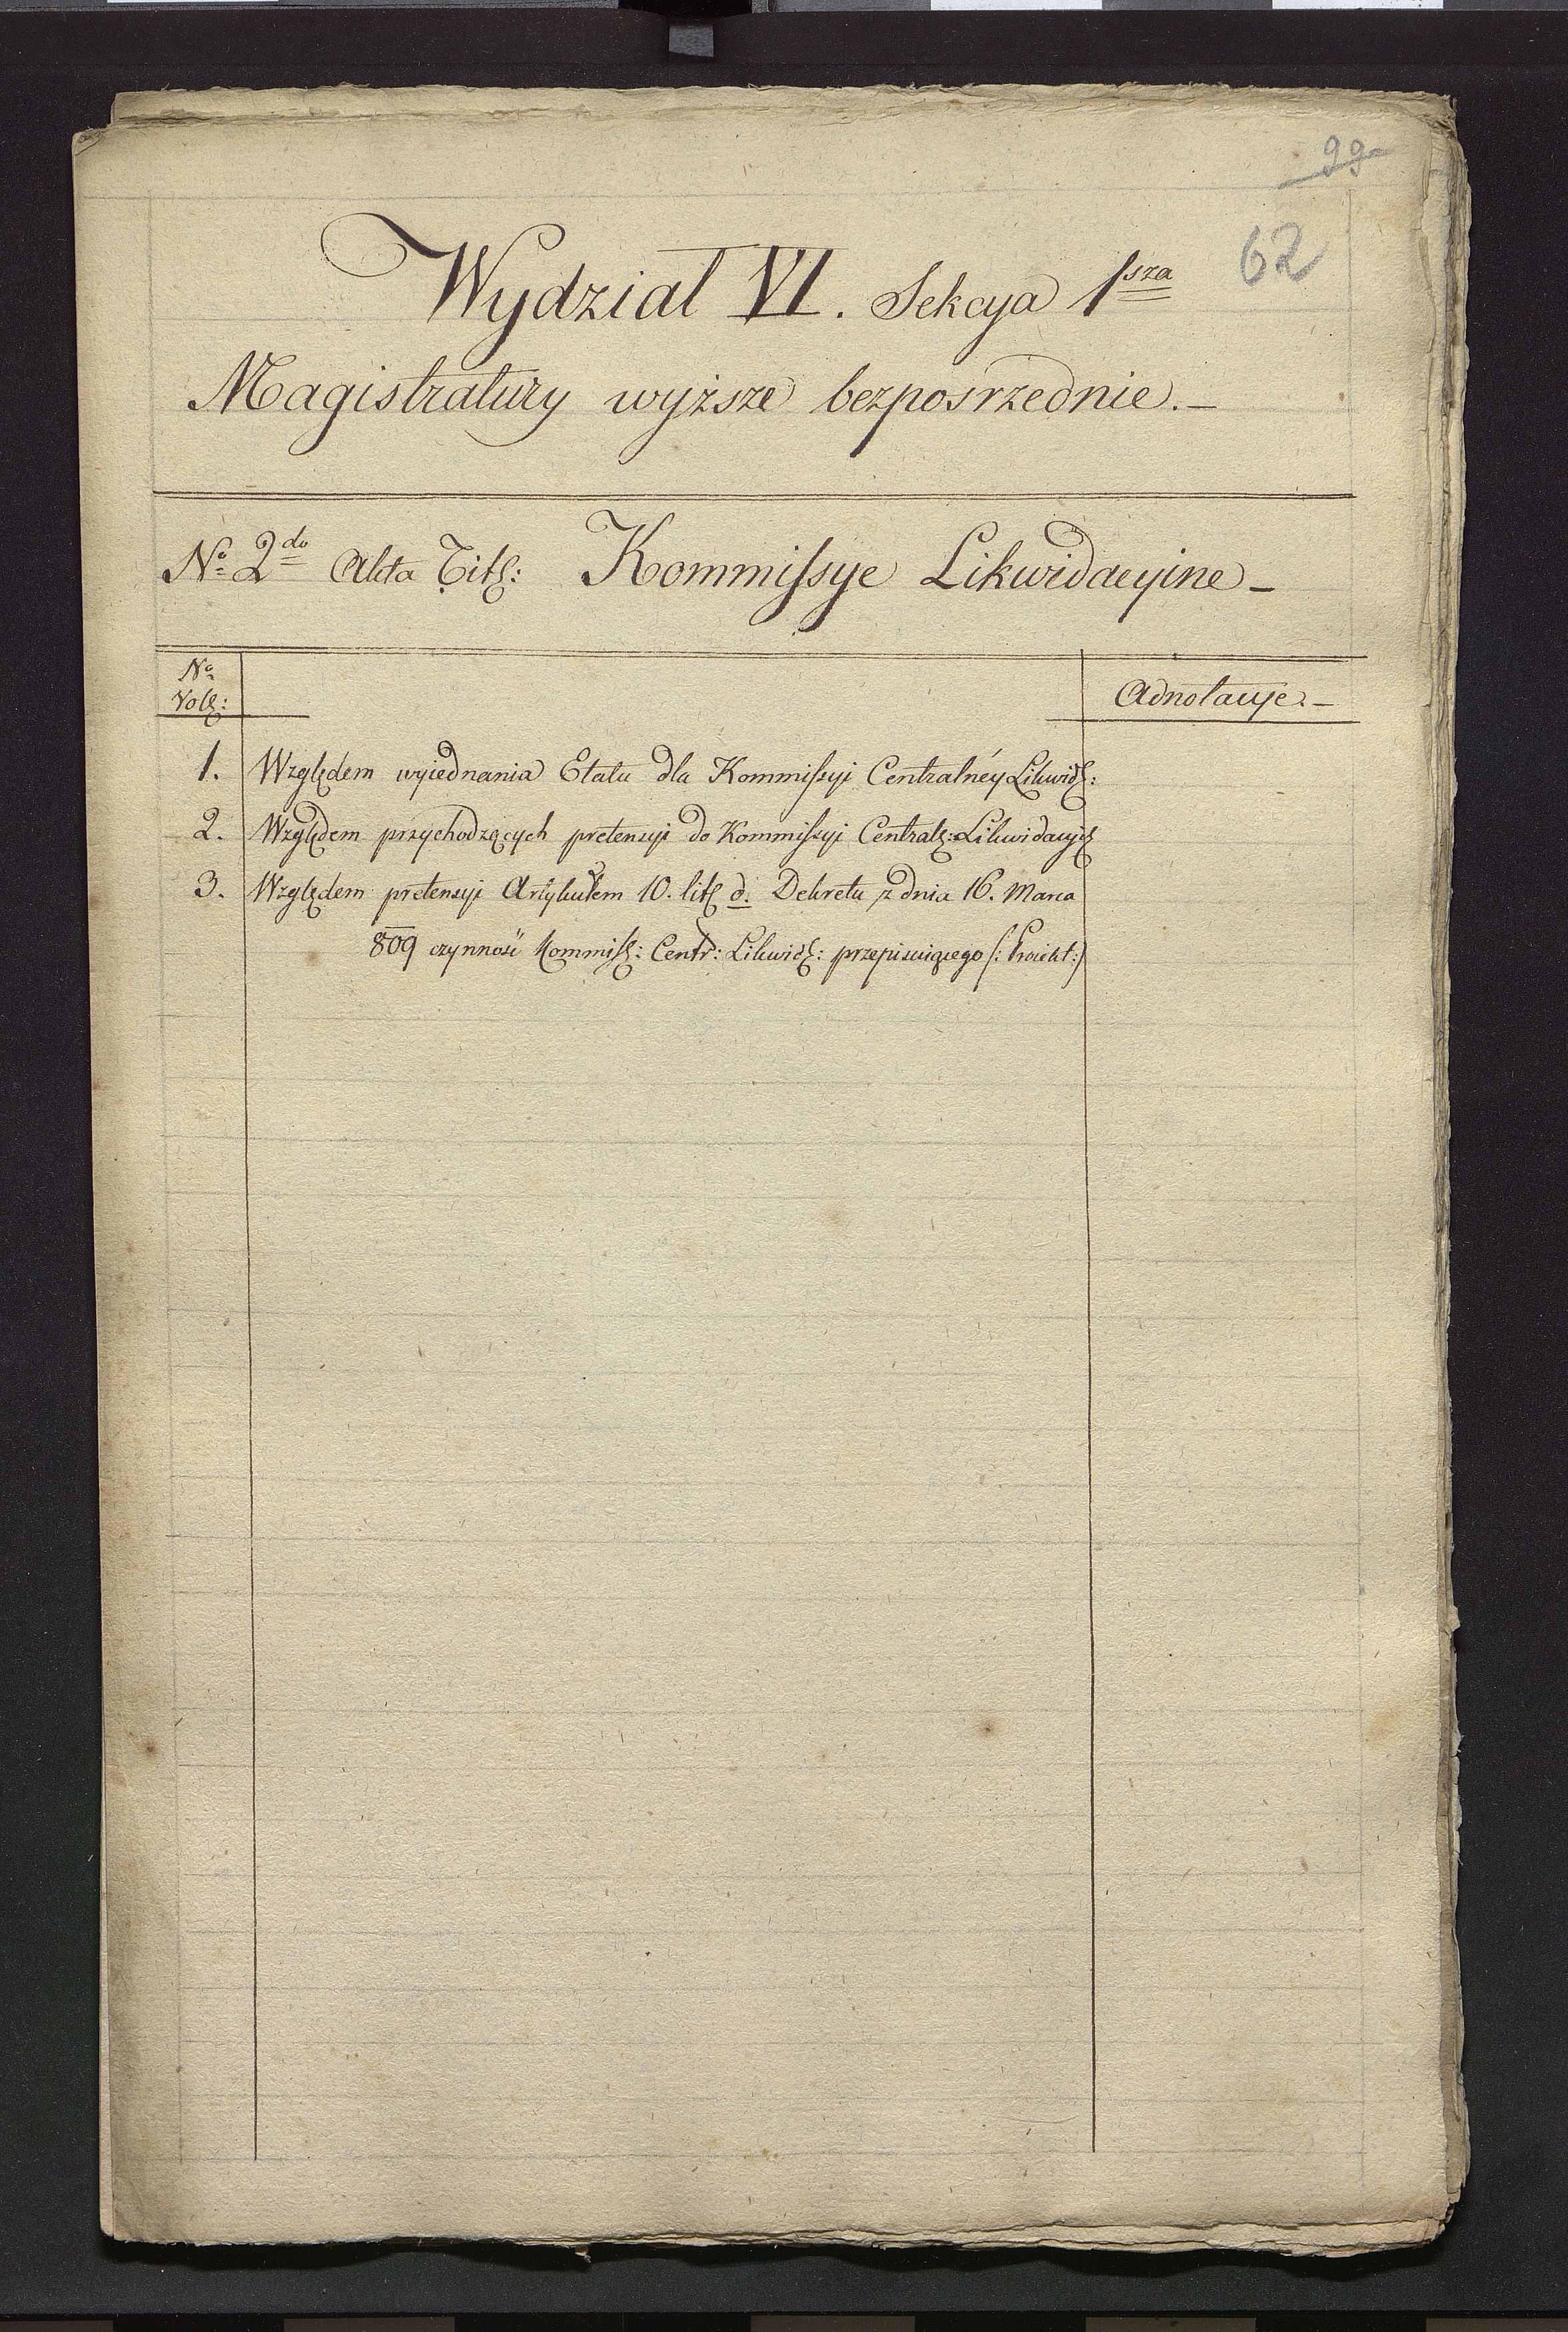 99
62
Wydział VI. Sekcya 1sza
Magistratury wyższe bezposrzednie.–
No 2do Akta Tit: Kommissye Likwidacyine–
No
Vol:
Adnotacye.–
1. Względem wyiednania Etatu dla Kommissyi Centralnéy Likwid:
2. Względem przychodzących pretensyi do Kommissyi Central: Likwidacyi
3. Względem pretensyi Artykułem 10. lit d. Dekretu z dnia 16. Marca
809 czynności Kommis: Centr: Likwid: przepisuiącego (: Proiekt:)